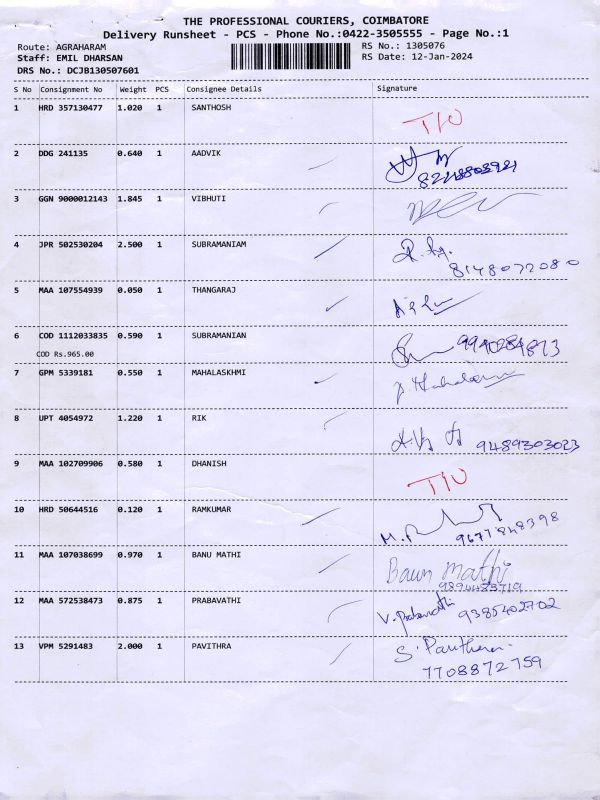 THE PROFESSIONAL COURIERS, COIMBATORE
Delivery Runsheet - PCS - Phone No.:0422-3505555 - Page No.:1
Route: AGRAHARAM RS No.: 1305076
Staff: EMIL DHARSAN RS Date: 12-Jan-2024
DRS No.: DCJB130507601
S No Consignment No Weight PCS Consignee Details Signature
1 HRD 357130477 1.020 1 SANTHOSH
2 DDG 241135 0.640 1 AADVIK
3 GGN 9000012143 1.845 1 VIBHUTI
4 JPR 502530204 2.500 1 SUBRAMANIAM
8148072080
5 MAA 107554939 0.050 1 THANGARAJ
6 COD 1112033835 0.590 1 SUBRAMANIAN 9940284873
COD Rs.965.00
7 GPM 5339181 0.550 1 MAHALASKHMI
8 UPT 4054972 1.220 1 RIK
9489303023
9 MAA 102709906 0.580 1 DHANISH
10 HRD 50644516 0.120 1 RAMKUMAR
9677848398
11 MAA 107038699 0.970 1 BANU MATHI Banu mathi
9894483719
12 MAA 572538473 0.875 1 PRABAVATHI V. Prabavathi 9385402702
13 VPM 5291483 2.000 1 PAVITHRA
7708872759